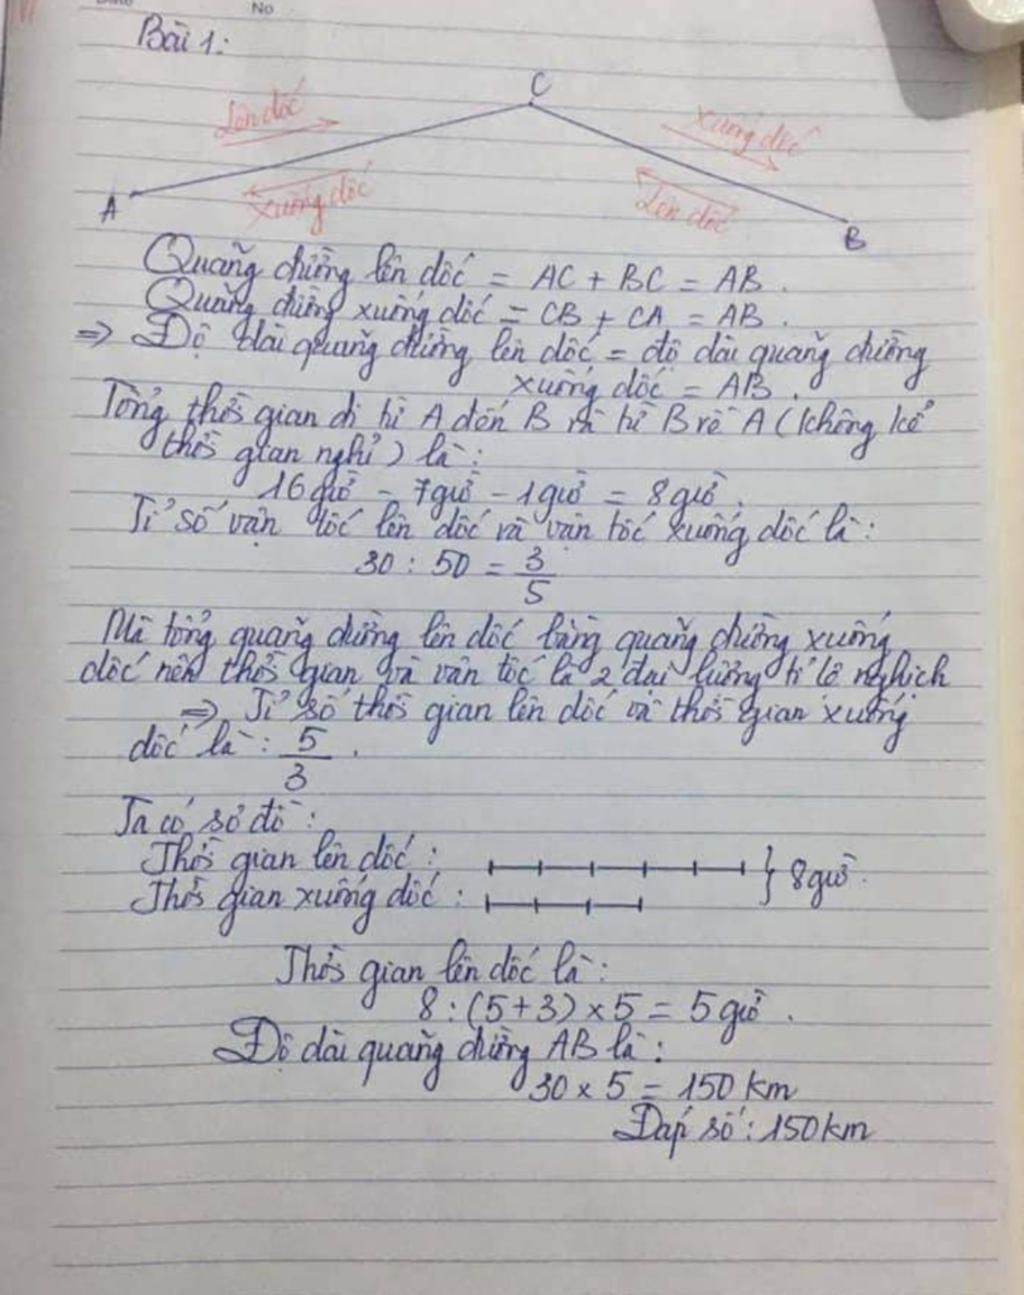 No
Bài 1:
C
Lên dốc
Xuống dốc
A
Xuống dốc
Lên dốc
B
Quãng đường lên dốc = AC + BC = AB.
Quãng đường xuống dốc = CB + CA = AB.
=> Độ dài quãng đường lên dốc = độ dài quãng đường
xuống dốc = AB.
Tổng thời gian đi từ A đến B và từ B về A (không kể
thời gian nghỉ) là:
16 giờ - 7 giờ - 1 giờ = 8 giờ.
Tỉ số vận tốc lên dốc và vận tốc xuống dốc là:
30 : 50 = 3/5
Mà tổng quãng đường lên dốc bằng quãng đường xuống
dốc nên thời gian và vận tốc là 2 đại lượng tỉ lệ nghịch
=> Tỉ số thời gian lên dốc và thời gian xuống
dốc là: 5/3.
Ta có sơ đồ:
Thời gian lên dốc:
Thời gian xuống dốc:
8 giờ.
Thời gian lên dốc là:
8 : (5+3) x 5 = 5 giờ.
Độ dài quãng đường AB là:
30 x 5 = 150 km
Đáp số: 150 km